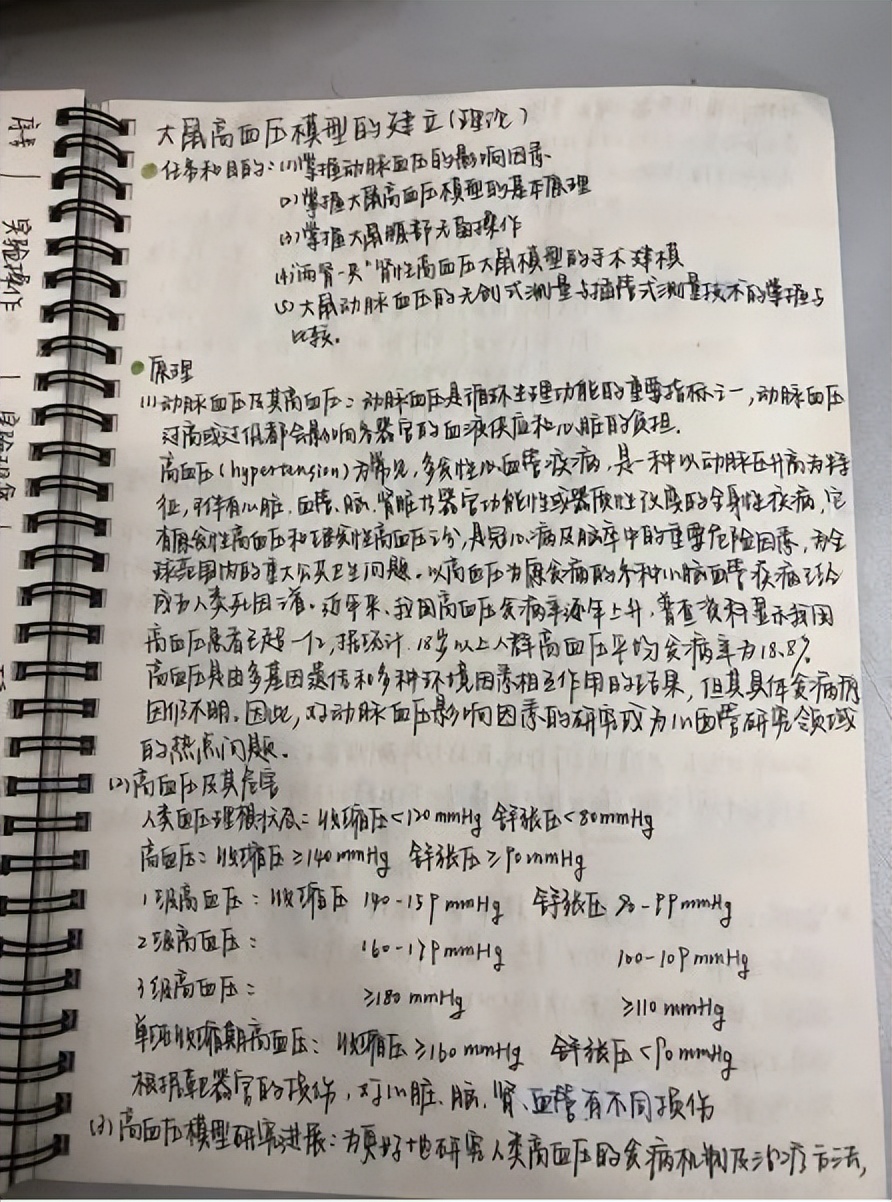 大鼠高血压模型的建立(理论)
任务和目的:(1)掌握动脉血压的影响因素
(2)掌握大鼠高血压模型的基本原理
(3)掌握大鼠腹部无菌操作
(4)"两肾一夹"肾性高血压大鼠模型的手术建模
(5)大鼠动脉血压的无创式测量与插管式测量技术的掌握与
比较。
原理
(1)动脉血压及其高血压:动脉血压是循环生理功能的重要指标之一,动脉血压
过高或过低都会影响各器官的血液供应和心脏的负担.
高血压(hypertension)为常见,多发性心血管疾病,是一种以动脉压升高为特
征,可伴有心脏、血管、脑、肾脏等器官功能性或器质性改变的全身性疾病,它
有原发性高血压和继发性高血压之分,是冠心病及脑卒中的重要危险因素,为全
球范围内的重大公共卫生问题。以高血压为原发病的各种心脑血管疾病已经
成为人类死因之首。近年来,我国高血压发病率逐年上升,普查资料显示我国
高血压患者已超一亿,据统计.18岁以上人群高血压平均发病率为18.8%
高血压是由多基因遗传和多种环境因素相互作用的结果,但其具体发病病
因仍不明。因此,对动脉血压影响因素的研究成为心血管研究领域
的热点问题。
(2)高血压及其危害
人类血压理想状态:收缩压<120mmHg 舒张压<80mmHg
高血压:收缩压≥140mmHg 舒张压≥90mmHg
1级高血压:收缩压 140-159mmHg 舒张压 90-99mmHg
2级高血压: 160-179mmHg 100-109mmHg
3级高血压: ≥180mmHg ≥110mmHg
单纯收缩期高血压:收缩压≥160mmHg 舒张压<90mmHg
根据靶器官的损伤,对心脏、脑、肾、血管有不同损伤
(3)高血压模型研究进展:为更好地研究人类高血压的发病机制及治疗方法,
实验操作